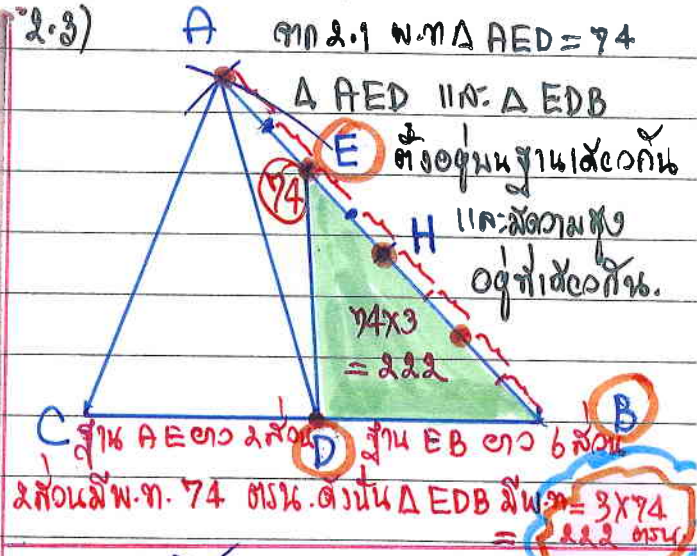 2.3) A จาก 2.1 พ.ท Δ AED = 74
Δ AED และ Δ EDB
E ตั้งอยู่บนฐานเดียวกัน
74
H และมีความสูง
อยู่ที่เดียวกัน.
74×3
= 222
C D B
ฐาน AE ยาว 2 ส่วน ฐาน EB ยาว 6 ส่วน
2 ส่วนมี พ.ท. 74 ตรน. ดังนั้น Δ EDB มี พ.ท = 3×74
= 222 ตรน.